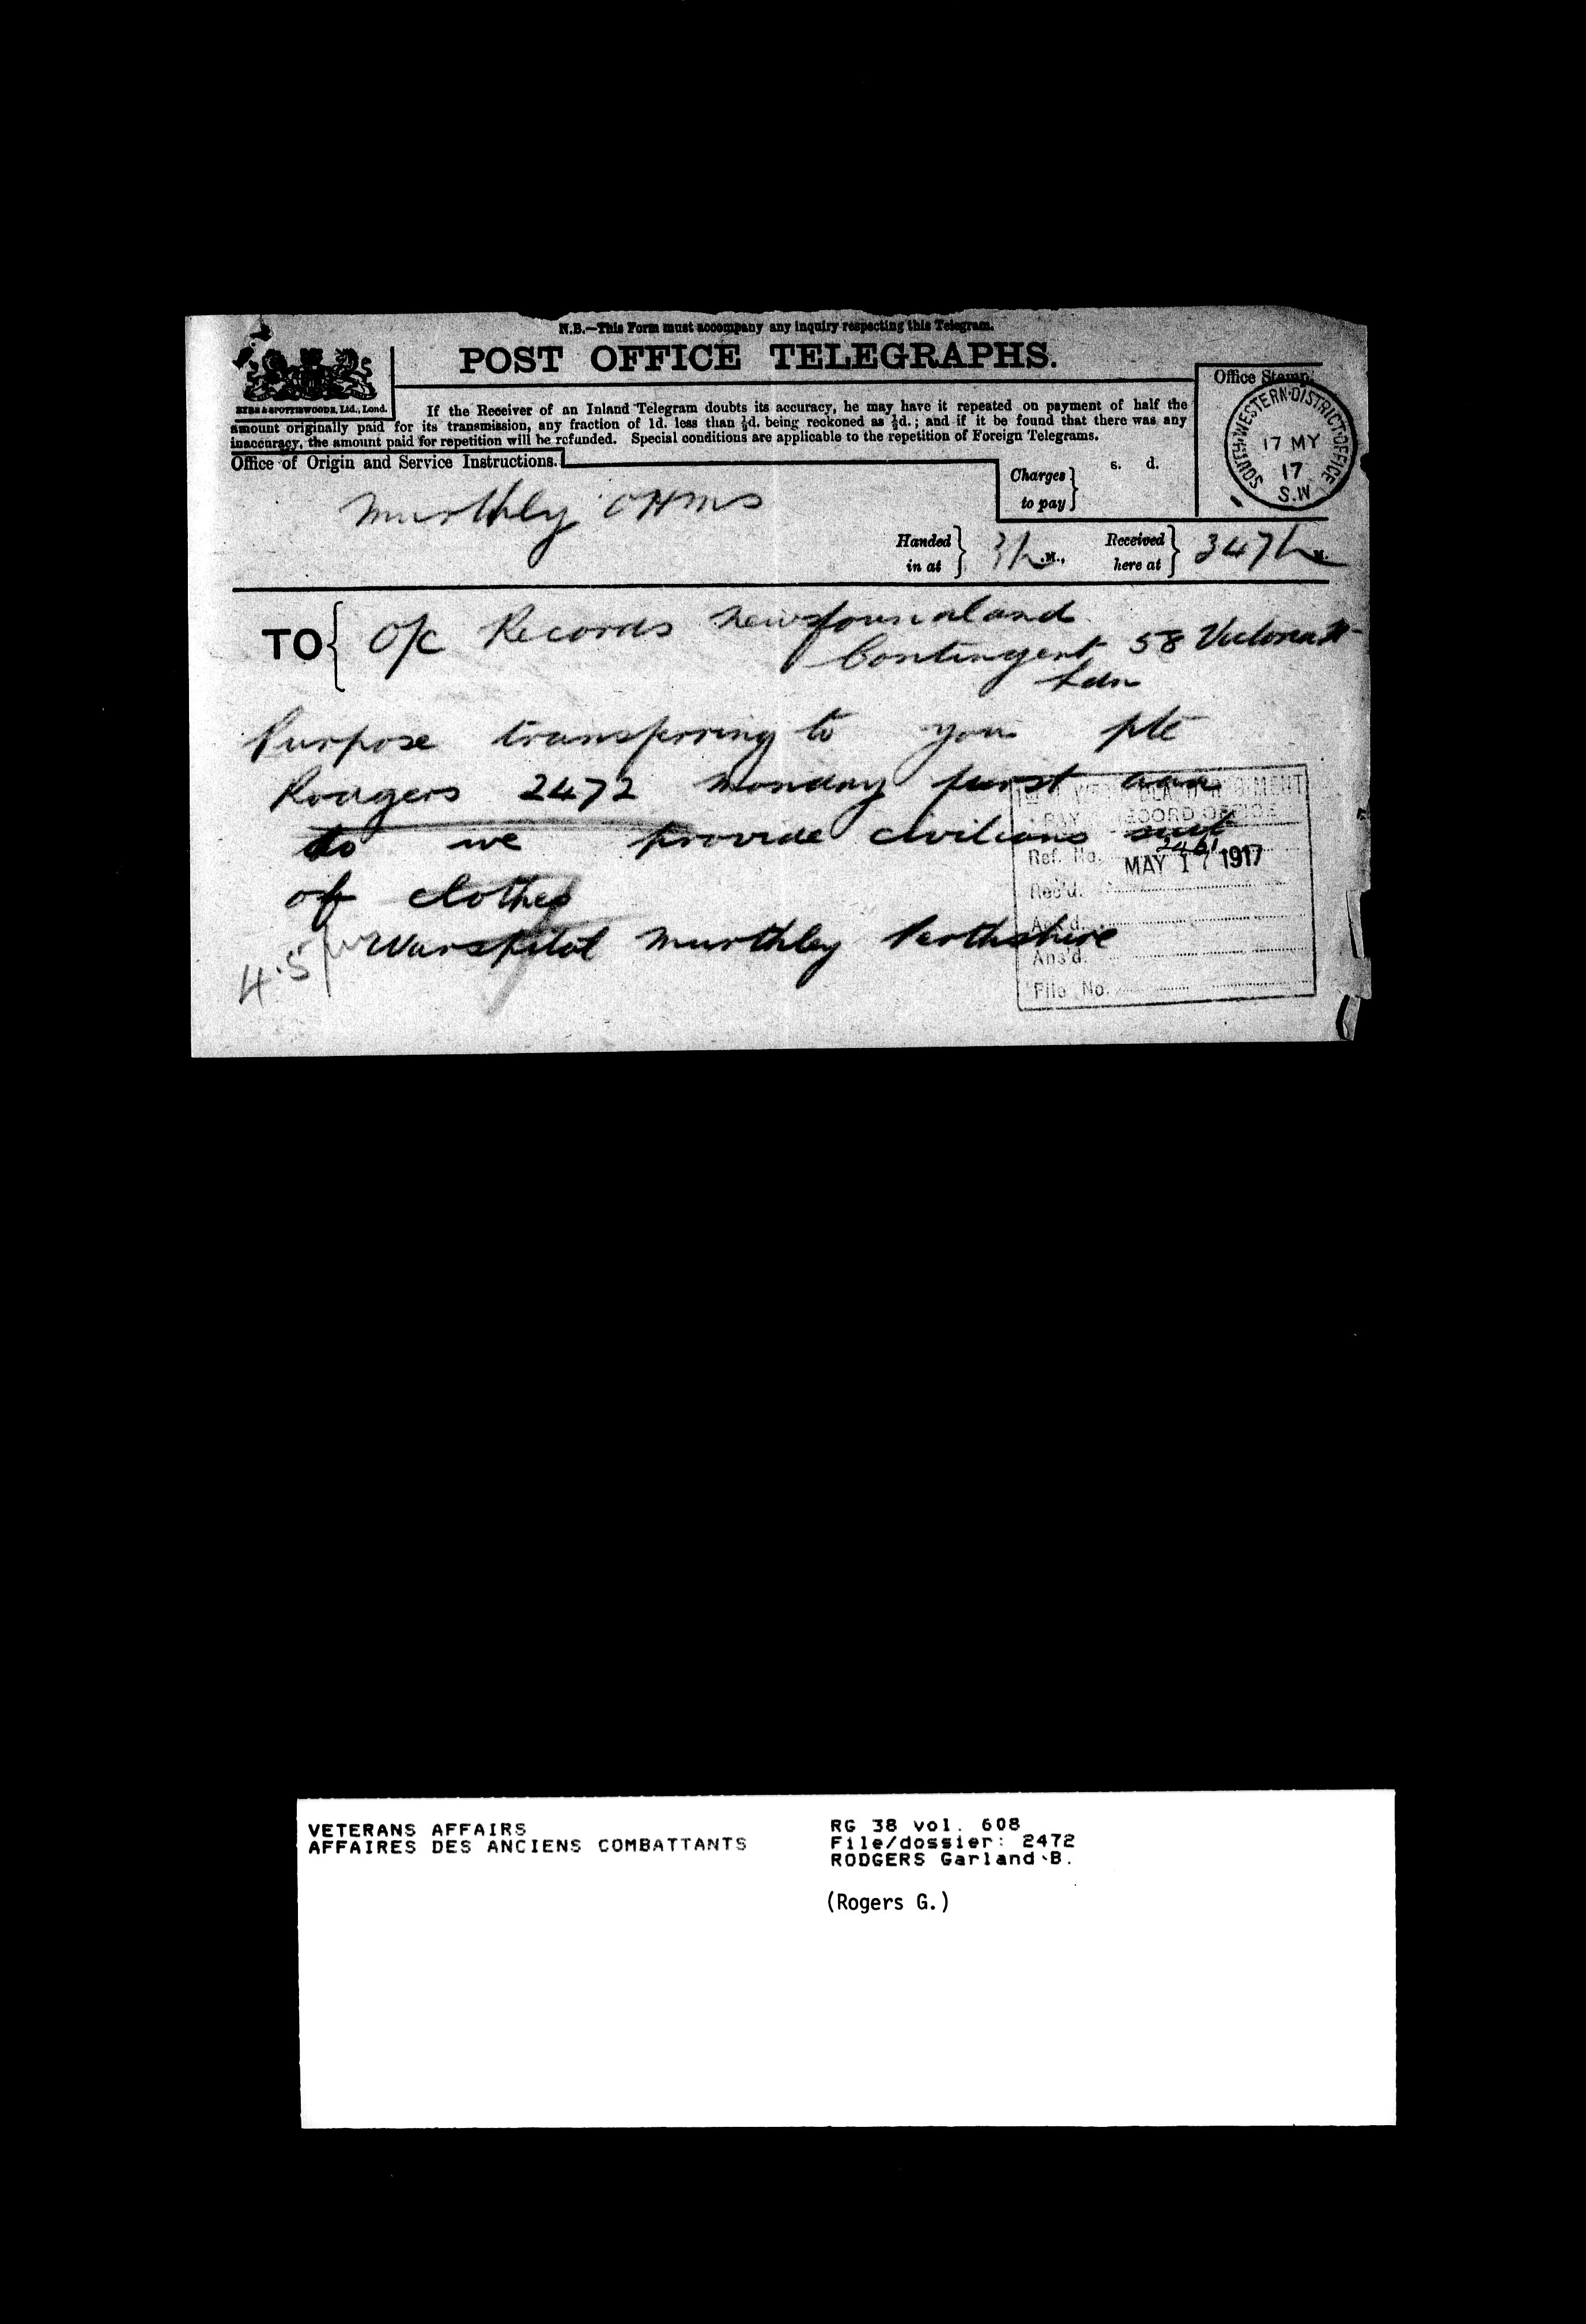 N.B.—This Form must accompany any inquiry respecting this Telegram.
POST OFFICE TELEGRAPHS.
EYRE & SPOTTISWOODE, Ltd., Lond.
If the Receiver of an Inland Telegram doubts its accuracy, he may have it repeated on payment of half the
amount originally paid for its transmission, any fraction of 1d. less than ½d. being reckoned as ½d.; and if it be found that there was any
inaccuracy, the amount paid for repetition will be refunded. Special conditions are applicable to the repetition of Foreign Telegrams.
Office Stamp.
SOUTH·WESTERN·DISTRICT·OFFICE
17 MY
17
S.W
Office of Origin and Service Instructions.
Charges to pay
s. d.
Murthly OHMS
Handed in at 3 .M., Received here at 347 M.
TO O/C Records Newfoundland
Contingent 58 Victoria St
Ldn
Purpose transferring to you pte
Rodgers 2472 monday
do we provide civilians suit
of clothes
Warspital Murthly Perthshire
4.5
PAY RECORD OFFICE
Ref. No.
MAY 17 1917
Rec'd.
Ack'd.
Ans'd.
File No.
VETERANS AFFAIRS
AFFAIRES DES ANCIENS COMBATTANTS
RG 38 vol. 608
File/dossier: 2472
RODGERS Garland B.
(Rogers G.)